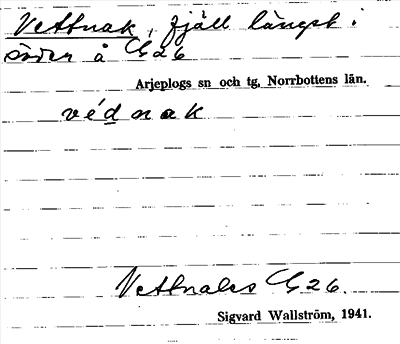 Vettnak, fjäll längst i
söder å G26
Arjeplogs sn och tg, Norrbottens län.
védnak
G26.
Sigvard Wallström, 1941.